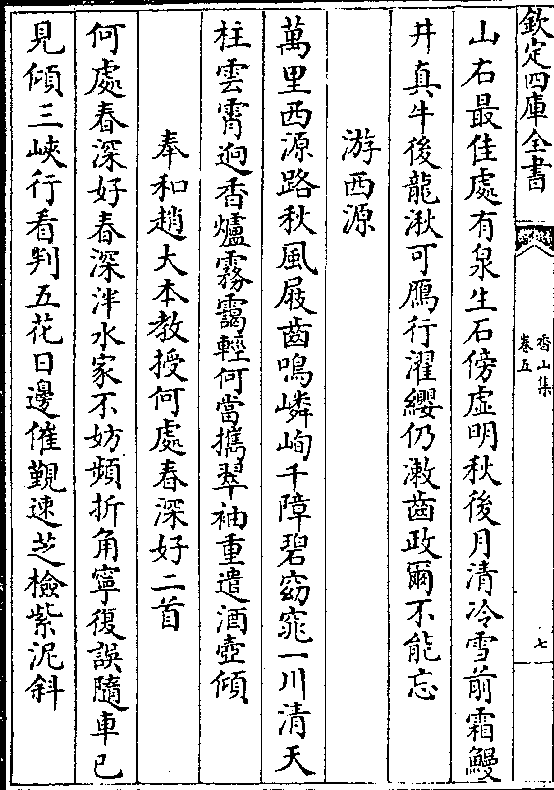 欽定四庫全書
香山集
卷五
七
山右最佳處有泉生石傍虛明秋後月清冷雪前霜鰻
井真牛後龍湫可鴈行濯纓仍潄齒政爾不能忘
游西源
萬里西源路秋風屐齒鳴嶙峋千障碧窈窕一川清天
柱雲霄逈香爐霧靄輕何當攜翠袖重遣酒壺傾
奉和趙大本教授何處春深好二首
何處春深好春深泮水家不妨頻折角寧復誤隨車已
見傾三峽行看判五花日邊催覲速芝檢紫泥斜